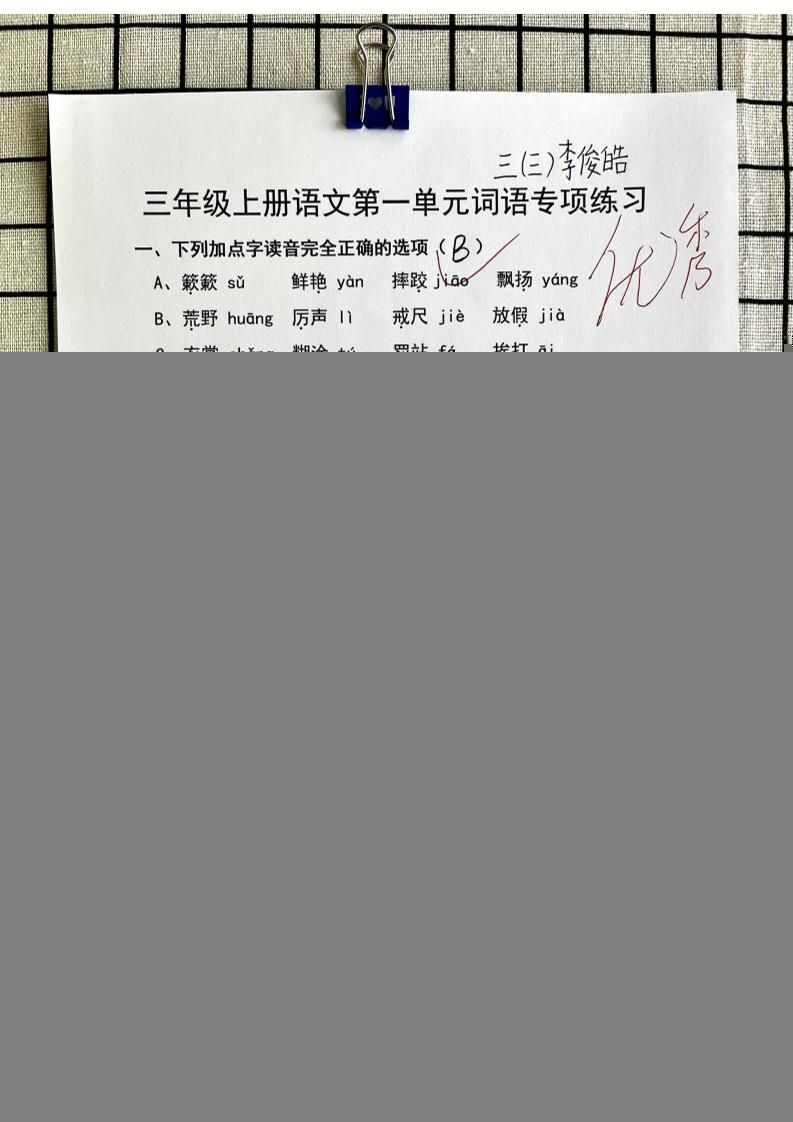 三(三)李俊皓
三年级上册语文第一单元词语专项练习
优秀
一、下列加点字读音完全正确的选项(B)
A、簌簌 sǔ 鲜艳 yàn 摔跤 jiāo 飘扬 yáng
B、荒野 huāng 厉声 lì 戒尺 jiè 放假 jià